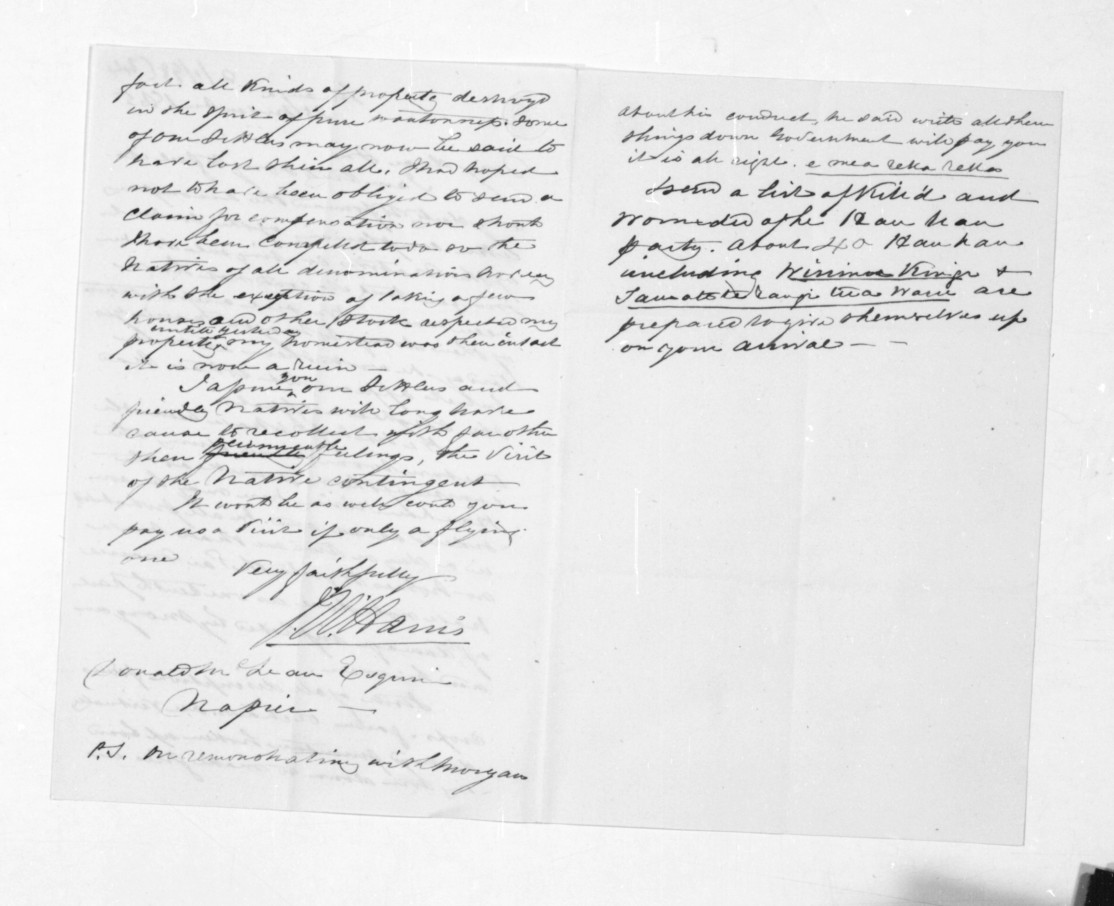 fact all kinds of property destroyed
in the spirit of pure wantonness. Some
of our Settlers may now be said to
have lost their all. I had hoped
not to have been obliged to send a
claim for compensation nor should
I have been compelled to do so the
Natives of all denominations
with the exception of taking a few
horses and other Stock respected my
property until yesterday my homestead was then intact
it is now a ruin —
I assure you our Settlers and
friendly Natives will long have
cause to recollect with far other
then friendly feelings, the visit
of the Native Contingent
It would be as well could you
pay us a visit if only a flying
one Very faithfully
J.W. Harris
Donald McLean Esquire
Napier —
P.S. On remonstrating with Morgan
about his conduct he said write all them
things down Government will pay you
it is all right. e mea reka reka
I send a list of Kill'd and
Wounded of the Hau hau
party. About 40 Hau hau
including Wirimoe Kingi &
are
prepared to give themselves up
on your arrival — —